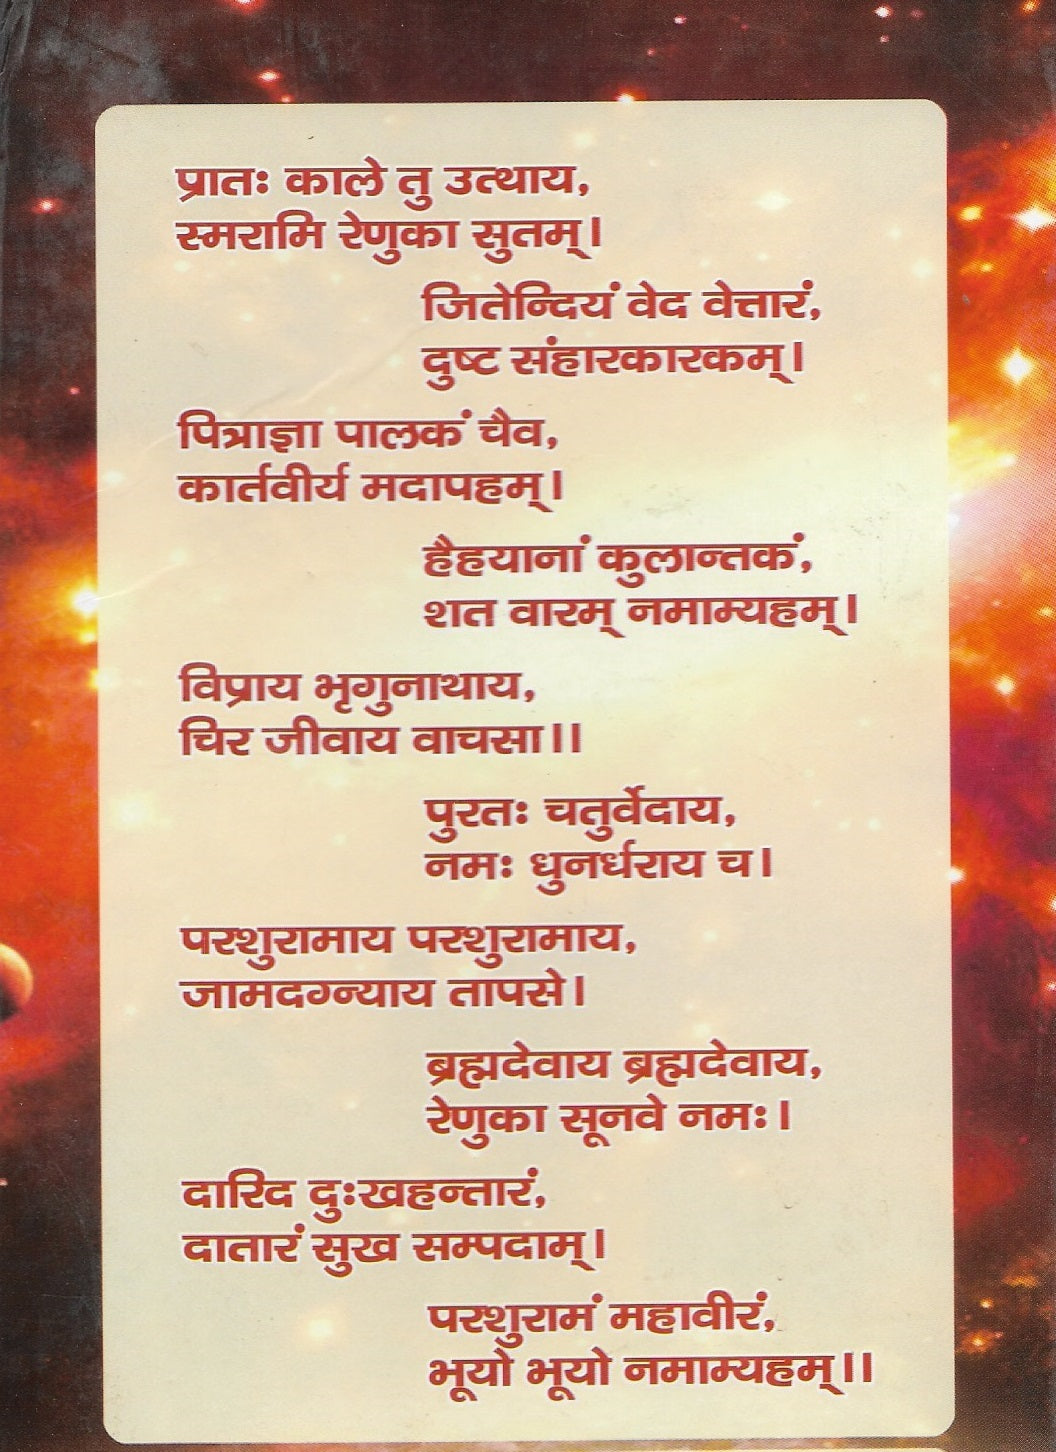 प्रातः काले तु उत्थाय,
स्मरामि रेणुका सुतम्।
जितेन्दियं वेद वेत्तारं,
दुष्ट संहारकारकम्।
पित्राज्ञा पालकं चैव,
कार्तवीर्य मदापहम्।
हैहयानां कुलान्तकं,
शत वारम् नमाम्यहम्।
विप्राय भृगुनाथाय,
चिर जीवाय वाचसा।।
पुरतः चतुर्वेदाय,
नमः धुनर्धराय च।
परशुरामाय परशुरामाय,
जामदग्न्याय तापसे।
ब्रह्मदेवाय ब्रह्मदेवाय,
रेणुका सूनवे नमः।
दारिद दुःखहन्तारं,
दातारं सुख सम्पदाम्।
परशुरामं महावीरं,
भूयो भूयो नमाम्यहम्।।